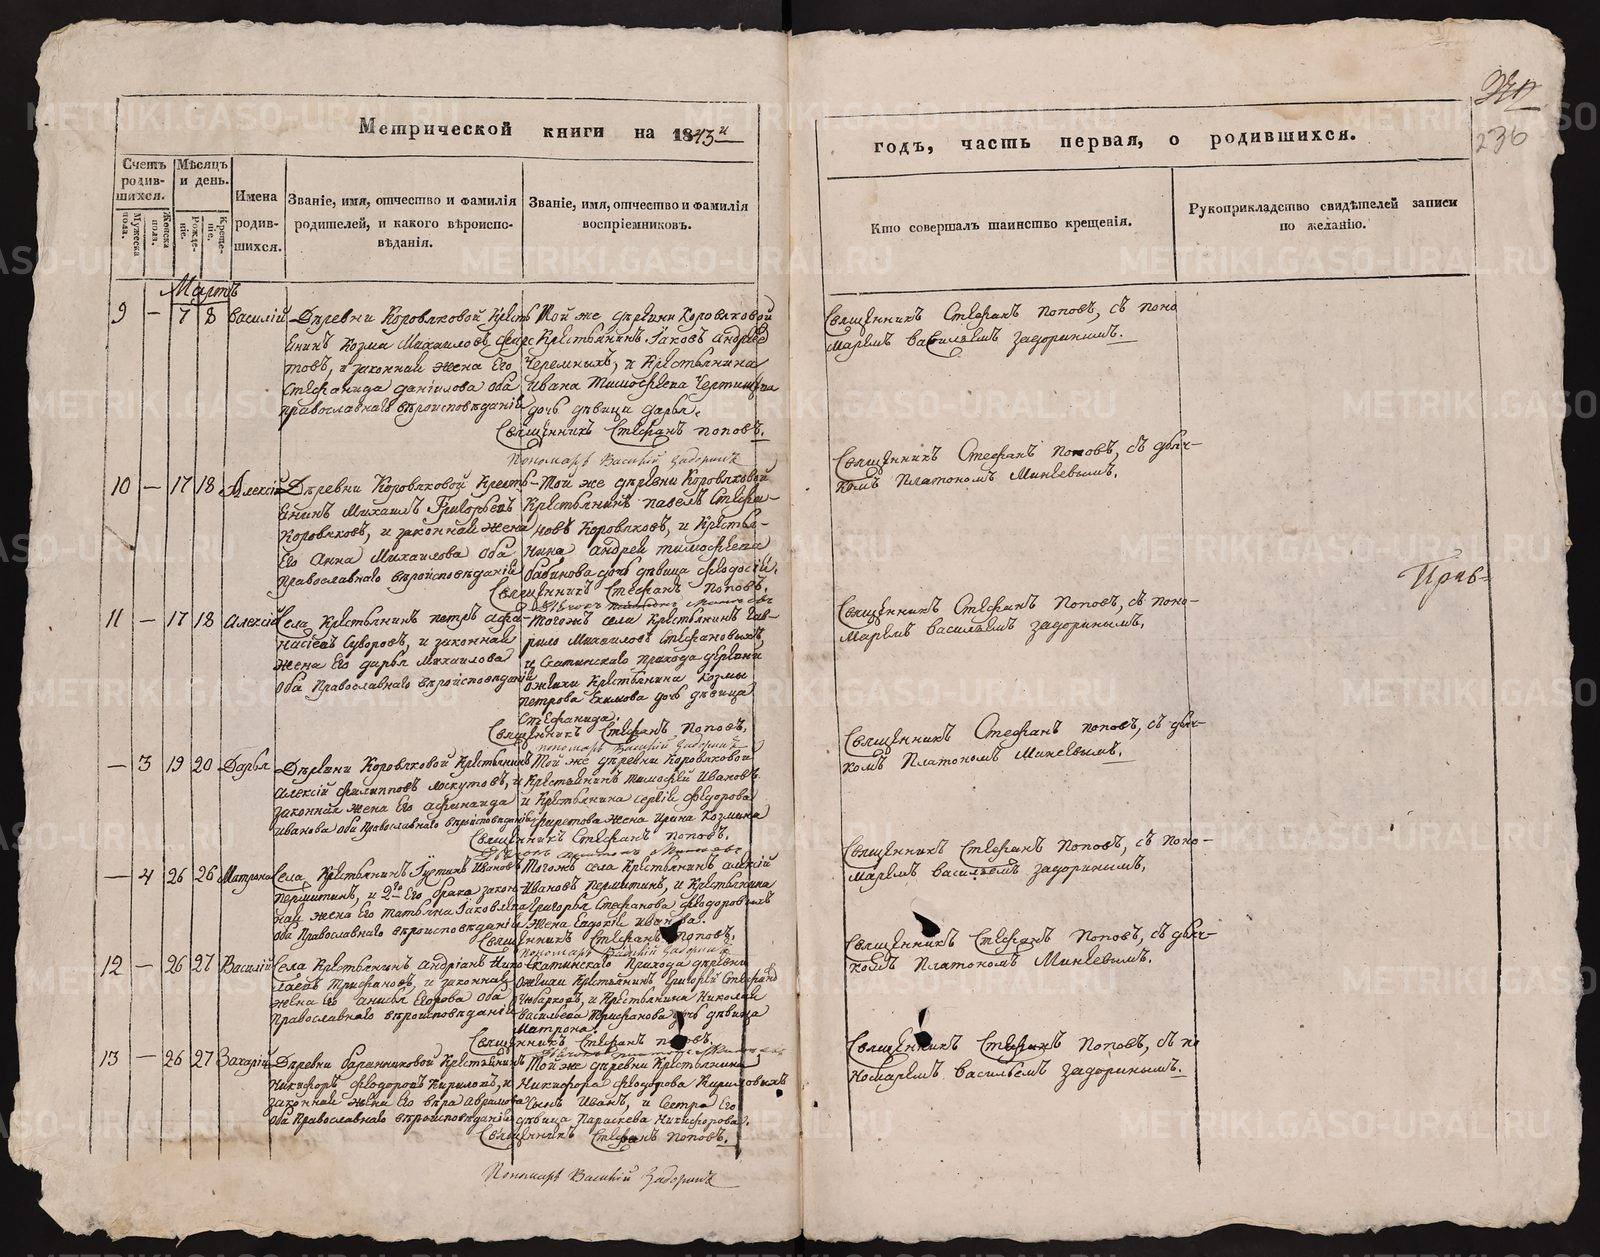 236
Метрической книги на 1843й
годъ, часть первая, о родившихся.
Счетъ родив-шихся.
Мужеска пола.
Женска пола.
Мѣсяцъ и день.
Рожде-ніе.
Креще-ніе.
Имена родив-шихся.
Званіе, имя, отчество и фамилія
родителей, и какого вѣроиспо-
вѣданія.
Званіе, имя, отчество и фамилія
воспріемниковъ.
Кто совершалъ таинство крещенія.
Рукоприкладство свидѣтелей записи
по желанію.
Мартъ
9 — 7 8 Василій
Деревни Коровяковой Кресть
янинъ Козма Михаиловъ
товъ, и законная жена Его
Стефанида Даніилова оба
православнаго вѣроисповѣданія
Той же деревни Коровяковой
Крестьянинъ Іаковъ Андреев
Черемныхъ, и Крестьянина
Ивана Тимофеева
дочь девица Дарья.
Священникъ Стефанъ Поповъ.
Пономарь Василій Задоринъ
Священникъ Стефанъ Поповъ, съ поно
маремъ Васильемъ Задоринымъ.
10 — 17 18 Алексій
Деревни Коровяковой Кресть-
янинъ Михаилъ Григорьевъ
Коровяковъ, и законная жена
Его Анна Михаилова оба
Православнаго вѣроисповѣданія
Той же деревни Коровяковой
Крестьянинъ Павелъ Стефа-
новъ Коровяковъ, и Крестья-
нина Андрея Тимофеева
Бабинова дочь девица Феодосія.
Священникъ Стефанъ Поповъ.
Священникъ Стефанъ Поповъ, съ дьяч-
комъ Платономъ Минеевымъ.
11 — 17 18 Алексій
Села Крестьянинъ Петръ Афа-
насіевъ Суворовъ, и законная
жена Его Дарья Михаилова
оба Православнаго вѣроисповѣданія
Тогожъ села Крестьянинъ Гав-
рило Михаиловъ Стефановыхъ,
и Скатинскаго прихода деревни
Ожгихи Крестьянина Козмы
Петрова Екимова дочь девица
Стефанида.
Священникъ Стефанъ Поповъ.
Пономарь Василій Задоринъ
Священникъ Стефанъ Поповъ, съ поно-
маремъ Васильемъ Задоринымъ.
— 3 19 20 Дарья
Деревни Коровяковой Крестьянинъ
Алексій Филипповъ Лоскутовъ, и
законная жена Его Афанаида
Иванова оба Православнаго вѣроисповѣданія
Той же деревни Коровяковой
Крестьянинъ Тимофей Ивановъ
и Крестьянина Сергія Федорова
жена Ирина Козмина
Священникъ Стефанъ Поповъ.
Священникъ Стефанъ Поповъ, съ дьяч-
комъ Платономъ Минеевымъ.
— 4 26 26 Матрона
Села Крестьянинъ Іустинъ Ивановъ
Пермитинъ, и 2го Его брака закон-
ная жена Его Татьяна Іаковлева
оба Православнаго вѣроисповѣданія
Тогожъ села Крестьянинъ Алексій
Ивановъ Пермитинъ, и Крестьянина
Григорья Стефанова Феодоровыхъ
жена Евдокія Иванова.
Священникъ Стефанъ Поповъ.
Пономарь Василій Задоринъ
Священникъ Стефанъ Поповъ, съ поно-
маремъ Васильемъ Задоринымъ.
12 — 26 27 Василій
Села Крестьянинъ Андріанъ Нико
лаевъ Трифановъ, и законная
жена Его Анисья Егорова оба
Православнаго вѣроисповѣданія
Скатинскаго Прихода деревни
Ожгихи Крестьянинъ Григорій Стефанов
Чюбаркоръ, и Крестьянина Николая
Васильева Трифанова дочь девица
Матрона.
Священникъ Стефанъ Поповъ.
Священникъ Стефанъ Поповъ, съ дьяч-
комъ Платономъ Минеевымъ.
13 — 26 27 Захарій
Деревни Баранниковой Крестьянинъ
Никифоръ Феодоровъ Кириловъ, и
законная жена Его Вера Аврамова
оба Православнаго вѣроисповѣданія
Той же деревни Крестьянина
Никифора Феодорова Кириловыхъ
сынъ Иванъ, и Сестра Его
девица Параскева Никифорова.
Священникъ Стефанъ Поповъ.
Пономарь Василій Задоринъ
Священникъ Стефанъ Поповъ, съ по
номаремъ Васильемъ Задоринымъ.
METRIKI.GASO-URAL.RU